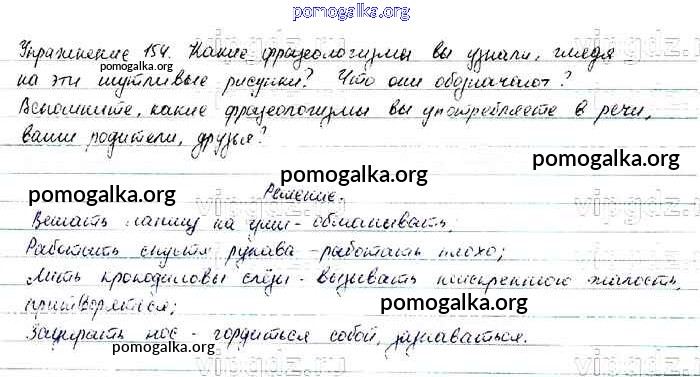 pomogalka.org
Упражнение 154. Какие фразеологизмы вы узнали, глядя
на эти шутливые рисунки? Что они обозначают?
Вспомните, какие фразеологизмы вы употребляете в речи,
ваши родители, друзья?
pomogalka.org
pomogalka.org
Решение.
Вешать лапшу на уши - обманывать;
pomogalka.org
Работать спустя рукава - работать плохо;
Лить крокодиловы слёзы - вызывать неискреннюю жалость,
притворяться;
pomogalka.org
Задирать нос - гордиться собой, зазнаваться.
pomogalka.org
vipgdz.ru
vipgdz.ru